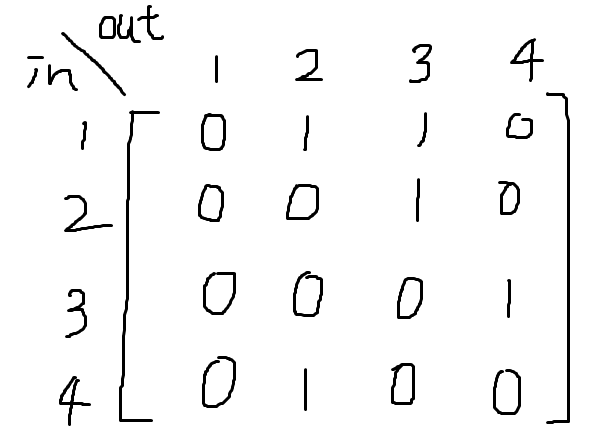 out
in 1 2 3 4
1 0 1 1 0
2 0 0 1 0
3 0 0 0 1
4 0 1 0 0